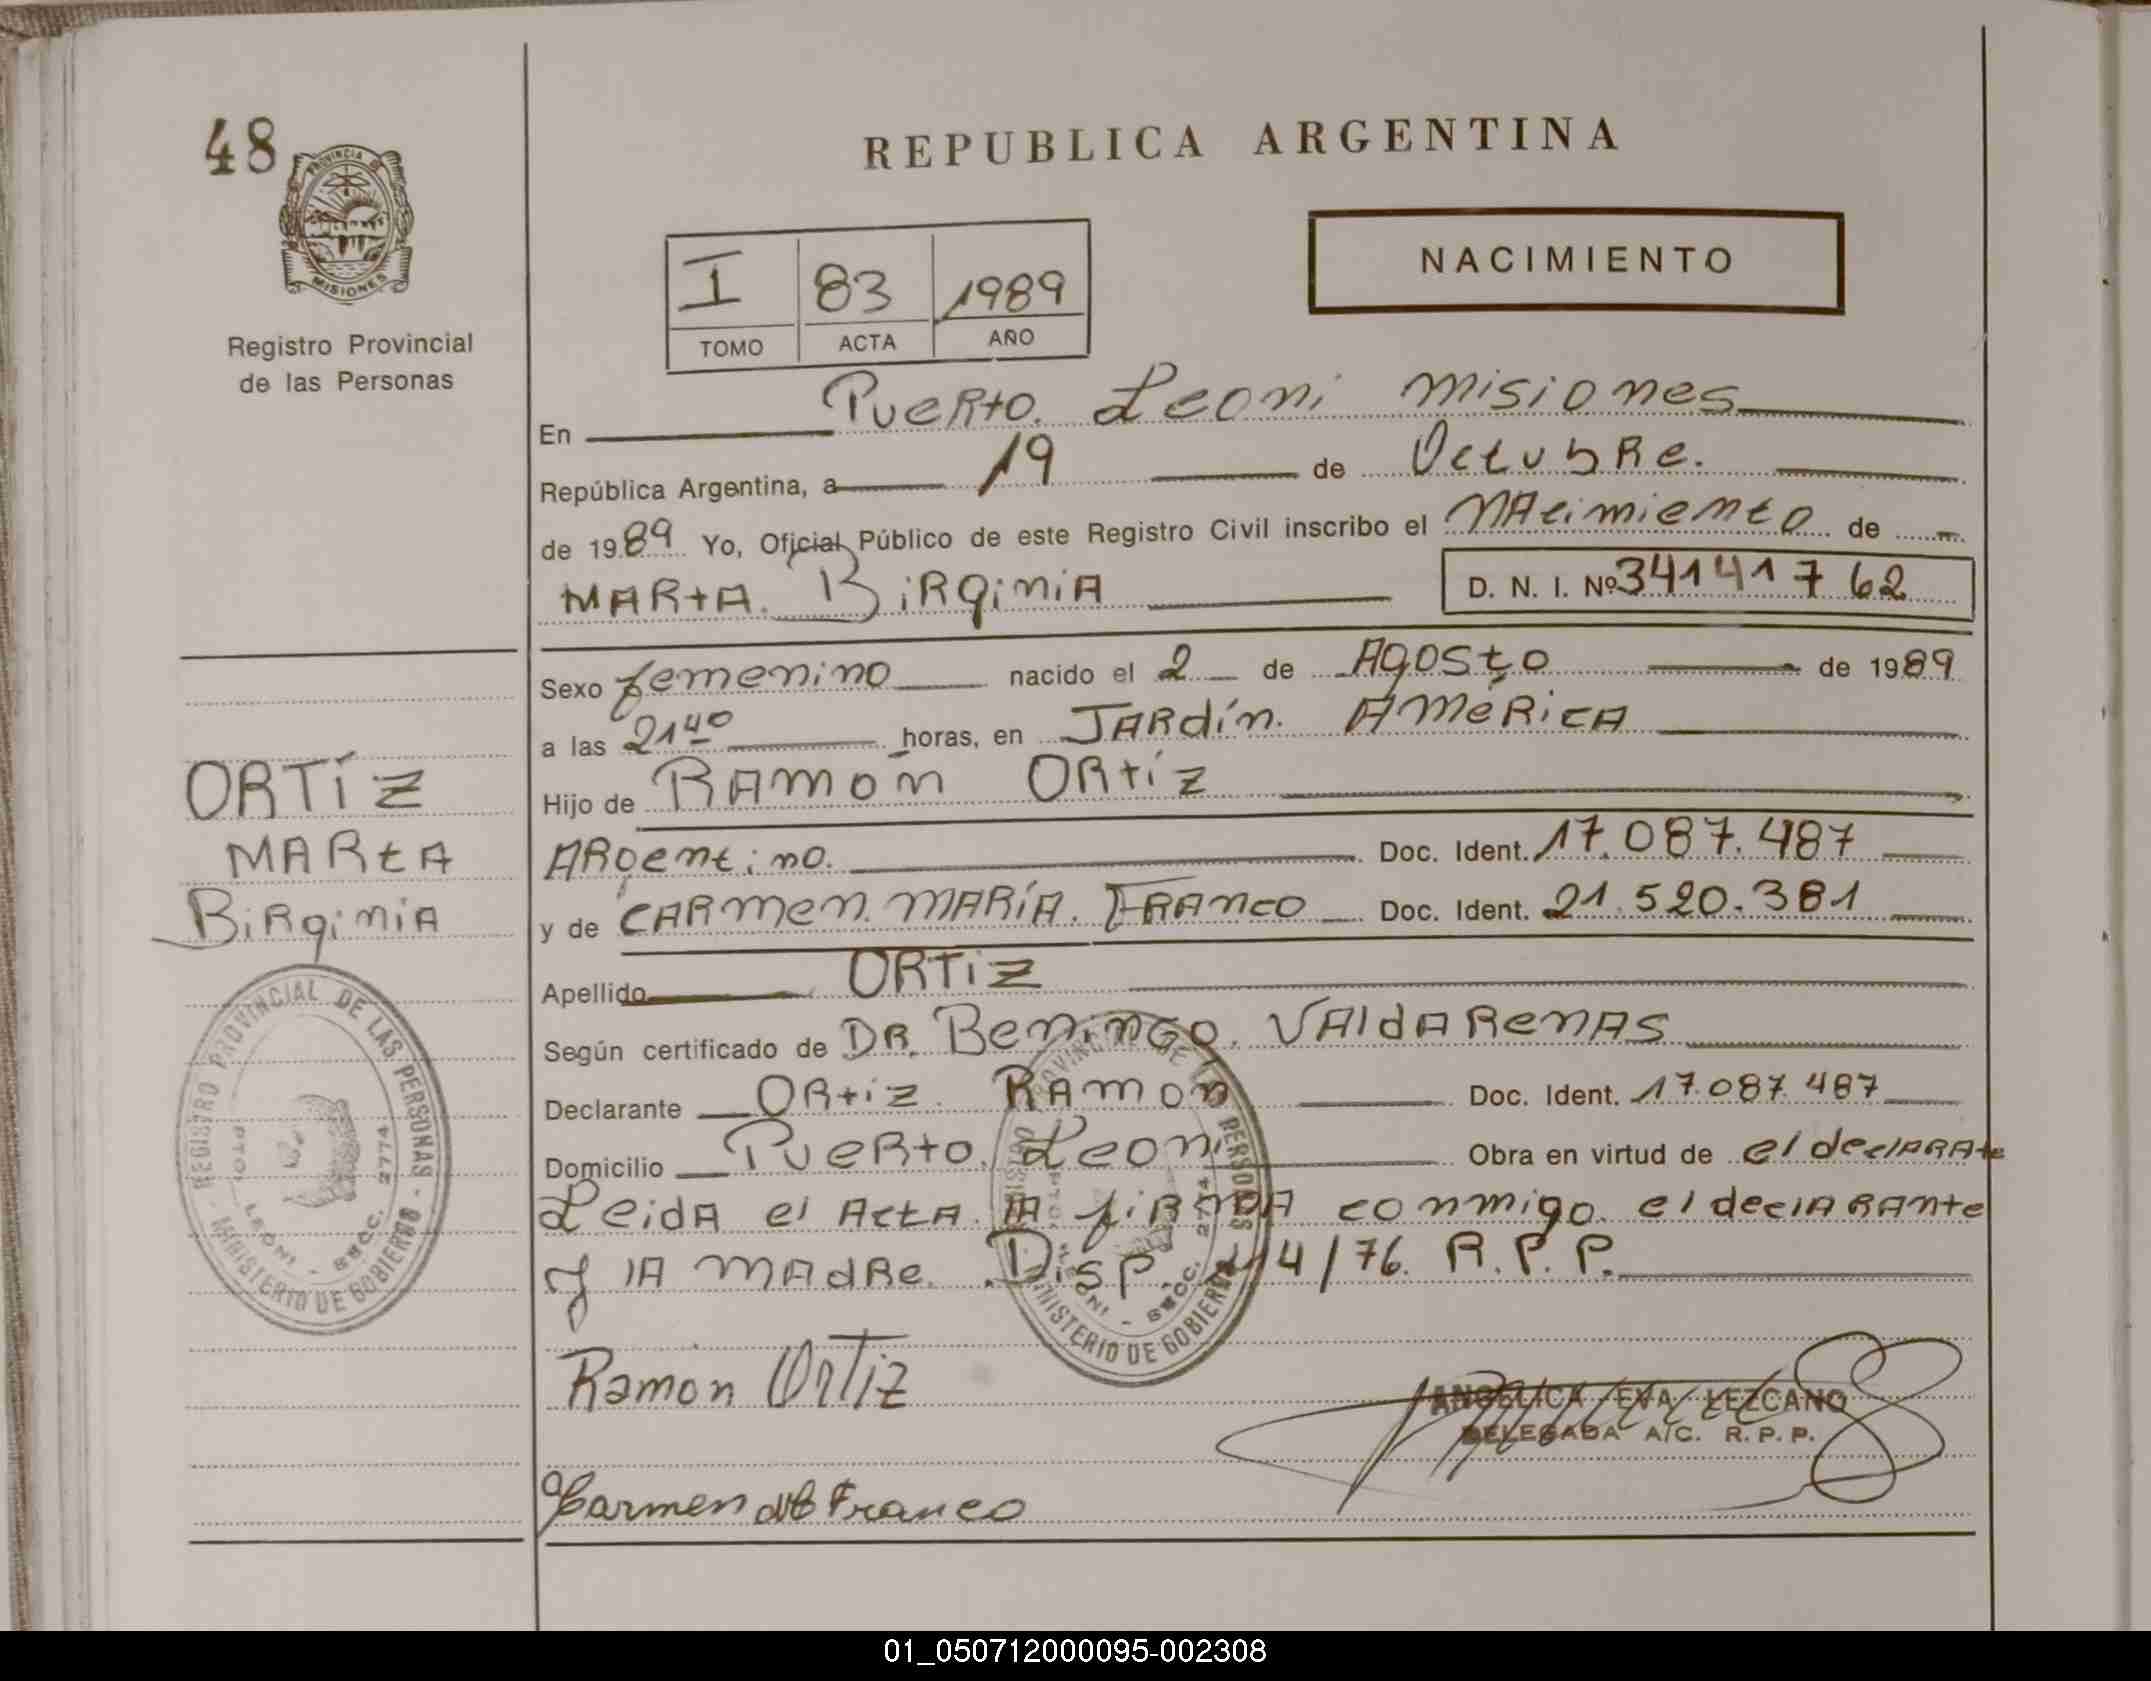 48
PROVINCIA DE
MISIONES
Registro Provincial
de las Personas
REPUBLICA ARGENTINA
NACIMIENTO
I 83 1989
TOMO ACTA AÑO
En Puerto Leoni misiones
República Argentina, a 19 de Octubre.
de 1989 Yo, Oficial Público de este Registro Civil inscribo el NAcimiento de
MARtA BiRginiA D. N. I. Nº 34141762
Sexo femenino nacido el 2 de Agosto de 1989
a las 21 40 horas, en JARdín AméRicA
Hijo de RAmón ORtíz
ARgentino. Doc. Ident. 17.087.487
y de CARmen MARíA FRAnco Doc. Ident. 21.520.381
Apellido ORTiz
Según certificado de DR. Beningo. VAldARenAs
Declarante ORtiz RAmon Doc. Ident. 17.087.487
Domicilio PueRto Leoni Obra en virtud de el declARAte
LeidA el ActA lA fiRmA conmigo el declARAnte
y lA mAdRe. Disp. 14/76. R.P.P.
Ramon Ortiz
ANGELICA EVA LEZCANO
DELEGADA A/C. R. P. P.
Carmen Franco
ORTíz
MARtA
BiRginiA
REGISTRO PROVINCIAL DE LAS PERSONAS - MINISTERIO DE GOBIERNO
PTO. LEONI - SECC. 2774
01_050712000095-002308